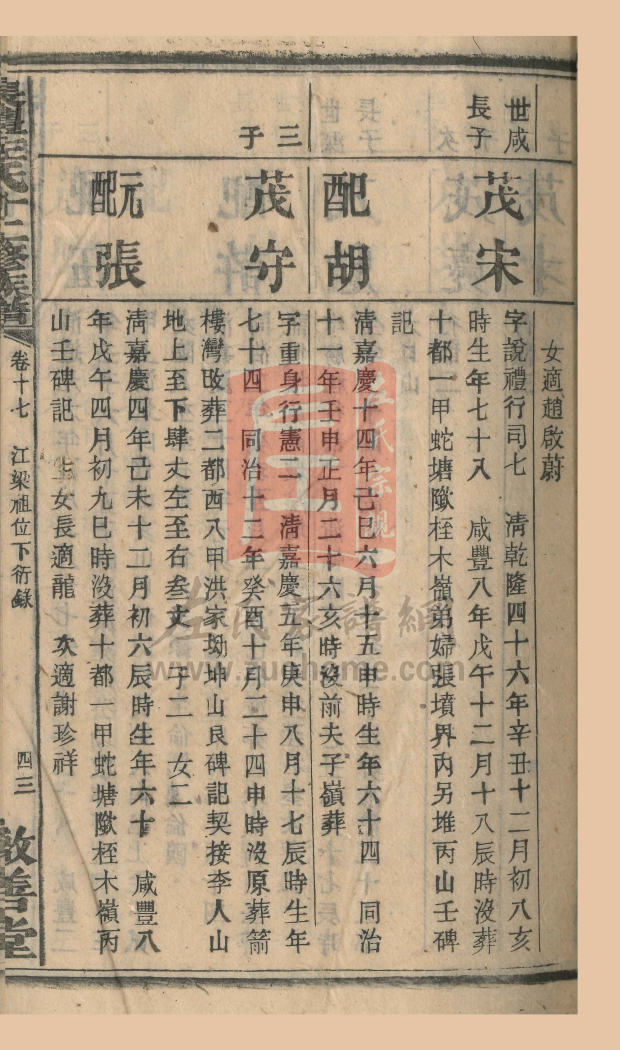 女適趙啟蔚
世咸
長子
茂宋
字說禮行司七　清乾隆四十六年辛丑十二月初八亥
時生年七十八　咸豐八年戊午十二月十八辰時沒葬
十都一甲蛇塘隞桎木嶺弟婦張墳界內另堆丙山壬碑
記
配胡
清嘉慶十四年己巳六月十五申時生年六十四　同治
十一年壬申正月二十六亥時沒前夫子嶺葬
三
子
茂守
字重身行憲二　清嘉慶五年庚申八月十七辰時生年
七十四　同治十二年癸酉十月二十四申時沒原葬箭
樓灣改葬二都西八甲洪家坳坤山艮碑記契接李人山
地上至下肆丈左至右叁丈　子二　女二
元配張
清嘉慶四年己未十二月初六辰時生年六十　咸豐八
年戊午四月初九巳時沒葬十都一甲蛇塘隞桎木嶺丙
山壬碑記　生女長適龍　次適謝珍祥
氏十二修族譜
卷十七　江梁祖位下衍錄
四三
敦善堂
左氏宗親
左氏家譜網
www.zuohome.com